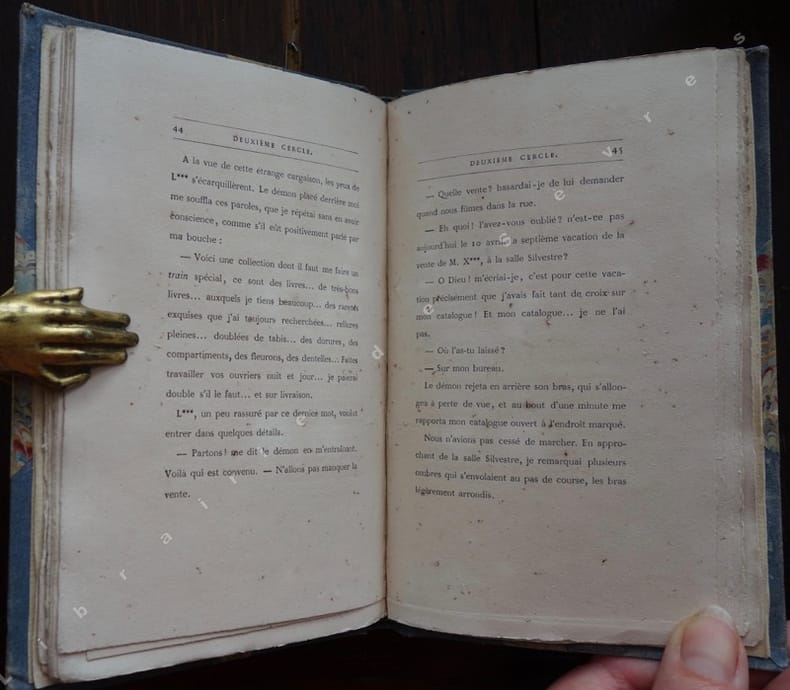 44
DEUXIÈME CERCLE.
A la vue de cette étrange cargaison, les yeux de
L*** s'écarquillèrent. Le démon placé derrière moi
me souffla ces paroles, que je répétai sans en avoir
conscience, comme s'il eût positivement parlé par
ma bouche :
— Voici une collection dont il faut me faire un
train spécial, ce sont des livres... de très-bons
livres... auxquels je tiens beaucoup... des raretés
exquises que j'ai toujours recherchées... reliures
pleines... doublées de tabis... des dorures, des
compartiments, des fleurons, des dentelles... Faites
travailler vos ouvriers nuit et jour... je paierai
double s'il le faut... et sur livraison.
L***, un peu rassuré par ce dernier mot, voulut
entrer dans quelques détails.
— Partons! me dit le démon en m'entraînant.
Voilà qui est convenu. — N'allons pas manquer la
vente.
DEUXIÈME CERCLE.
45
— Quelle vente? hasardai-je de lui demander
quand nous fûmes dans la rue.
— Eh quoi! l'avez-vous oublié? n'est-ce pas
aujourd'hui le 10 avril la septième vacation de la
vente de M. X***, à la salle Silvestre?
— O Dieu! m'écriai-je, c'est pour cette vaca-
tion précisément que j'avais fait tant de croix sur
mon catalogue! Et mon catalogue... je ne l'ai
pas.
— Où l'as-tu laissé?
— Sur mon bureau.
Le démon rejeta en arrière son bras, qui s'allon-
gea à perte de vue, et au bout d'une minute me
rapporta mon catalogue ouvert à l'endroit marqué.
Nous n'avions pas cessé de marcher. En appro-
chant de la salle Silvestre, je remarquai plusieurs
ombres qui s'envolaient au pas de course, les bras
légèrement arrondis.